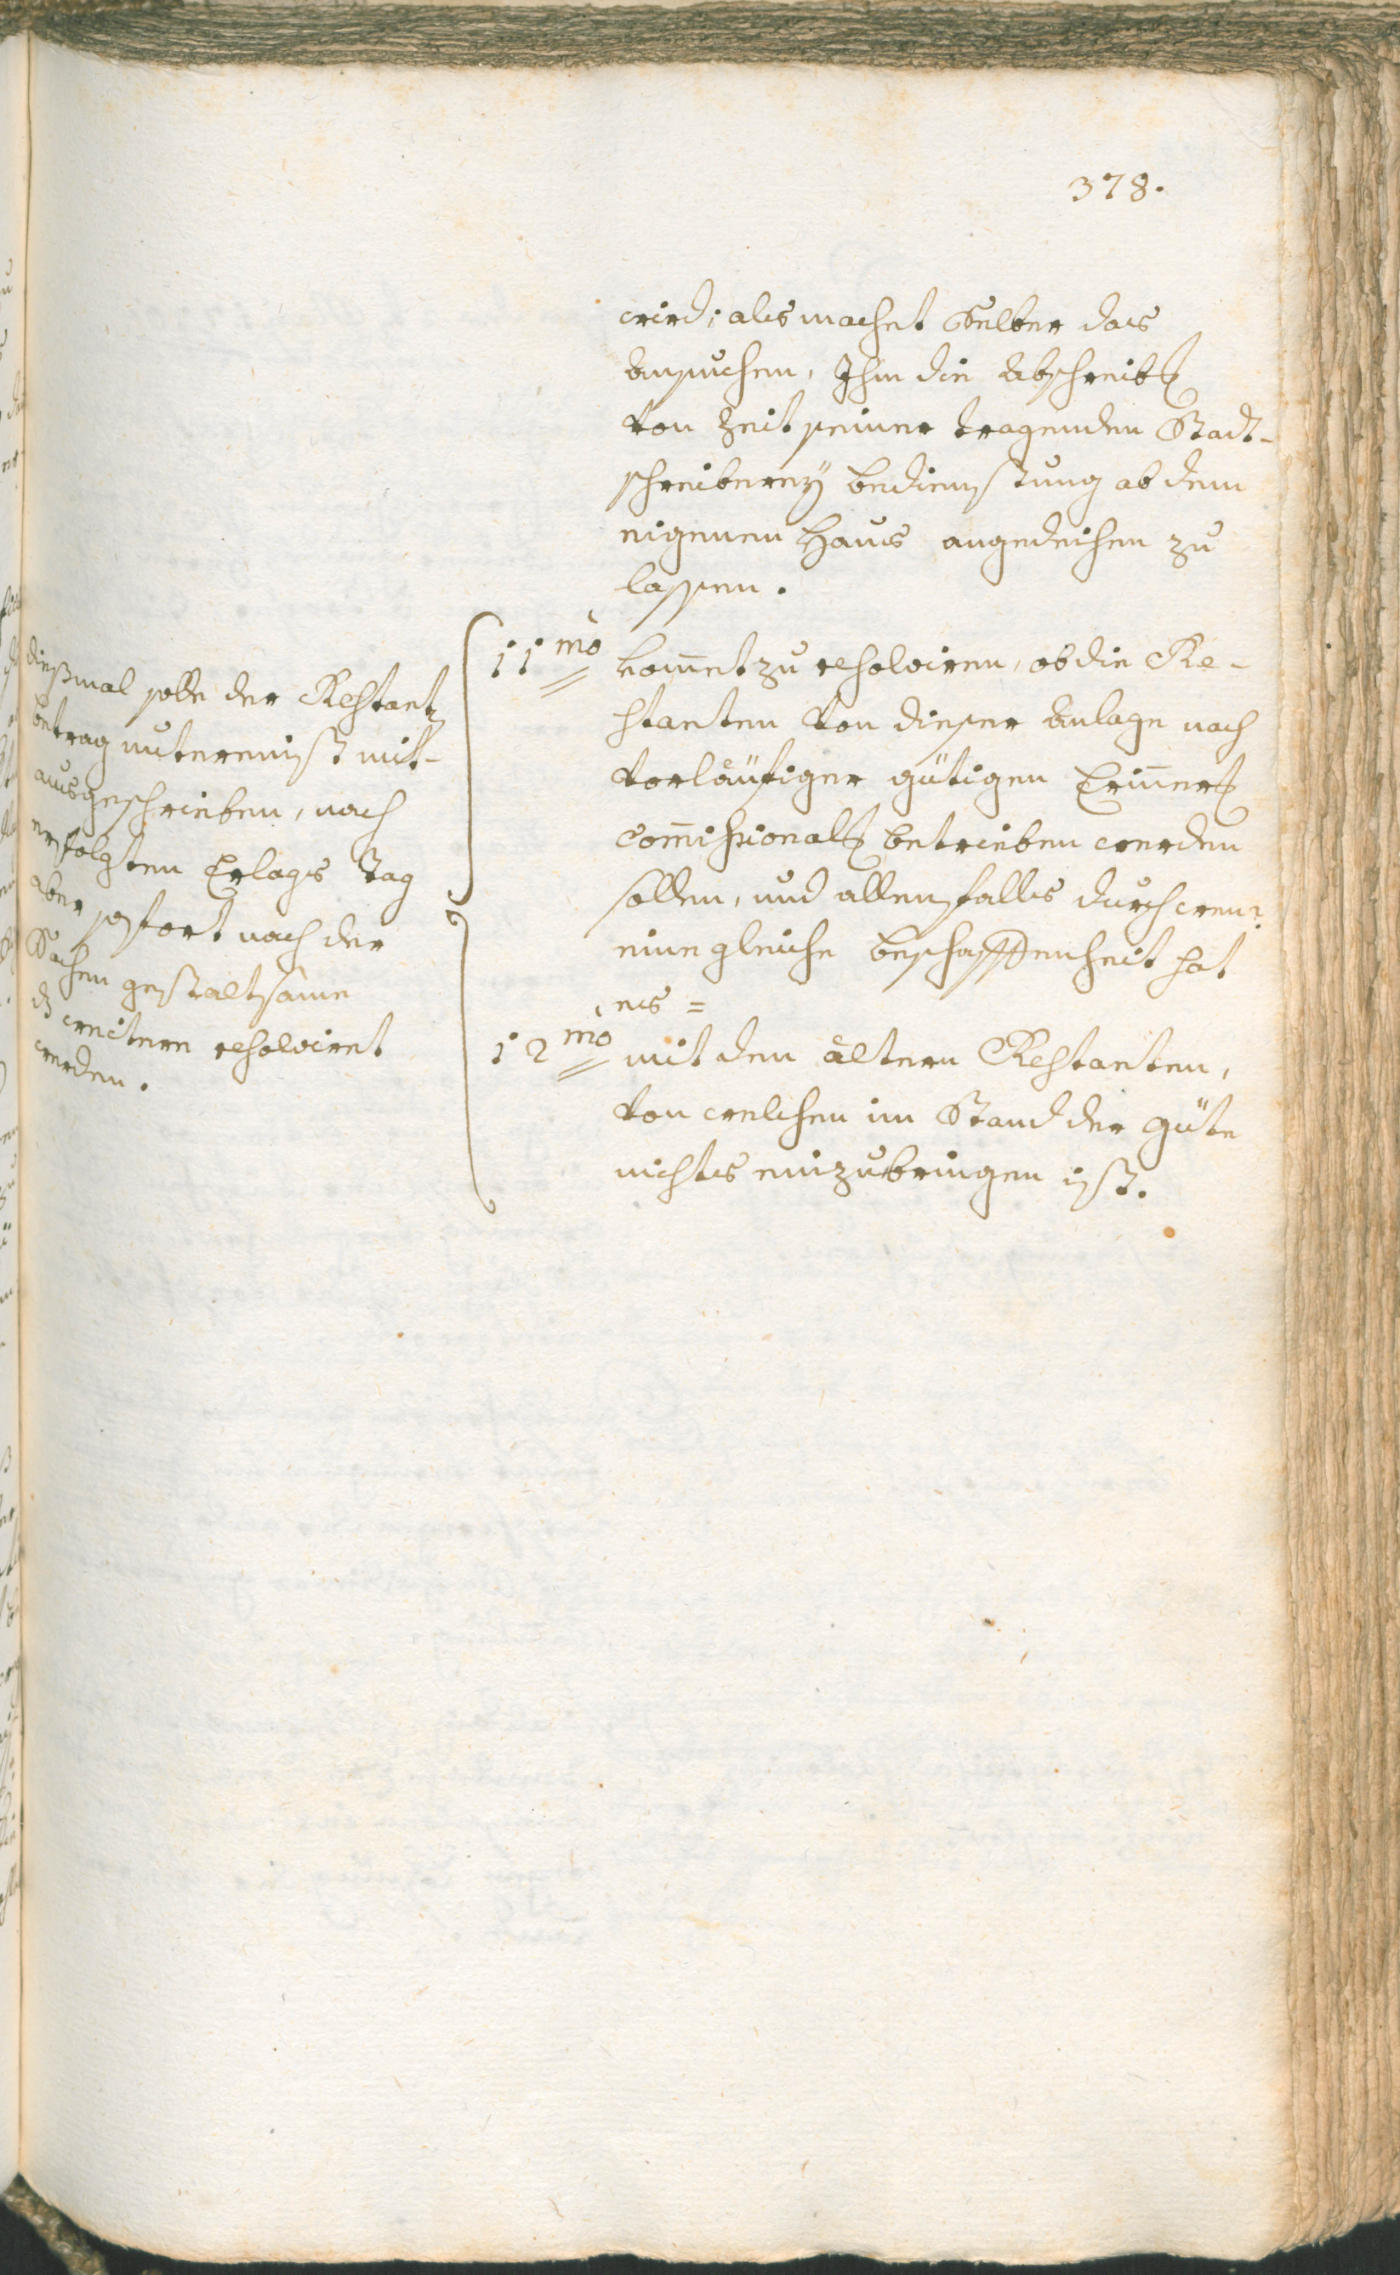 378.
wird; als machet Selber das
Ansuchen, Ihm die Abschreibg
von Zeit seiner tragenden Stadt-
schreiberey bedienstung ab dem
eigenen Haus angedeihen zu
lassen.
11mo kom̄et zu resolviren, ob die Re-
stanten von dieser Anlage nach
vorläufiger gütigen Erin̄erg
Com̄issionalr betrieben werden
sollen, und allenfalls durch wen?
eine gleiche beschaffenheit hat
es =
12mo mit den ältern Restanten,
von welchen im Stand der Güte
nichts einzubringen ist.
dießmal solle der Restantz
betrag unterenist mit-
ausgeschrieben, nach
erfolgten Erlags Tag
aber sofort nach der
Sachen gestaltsame
dz weitere resolvirt
werden.